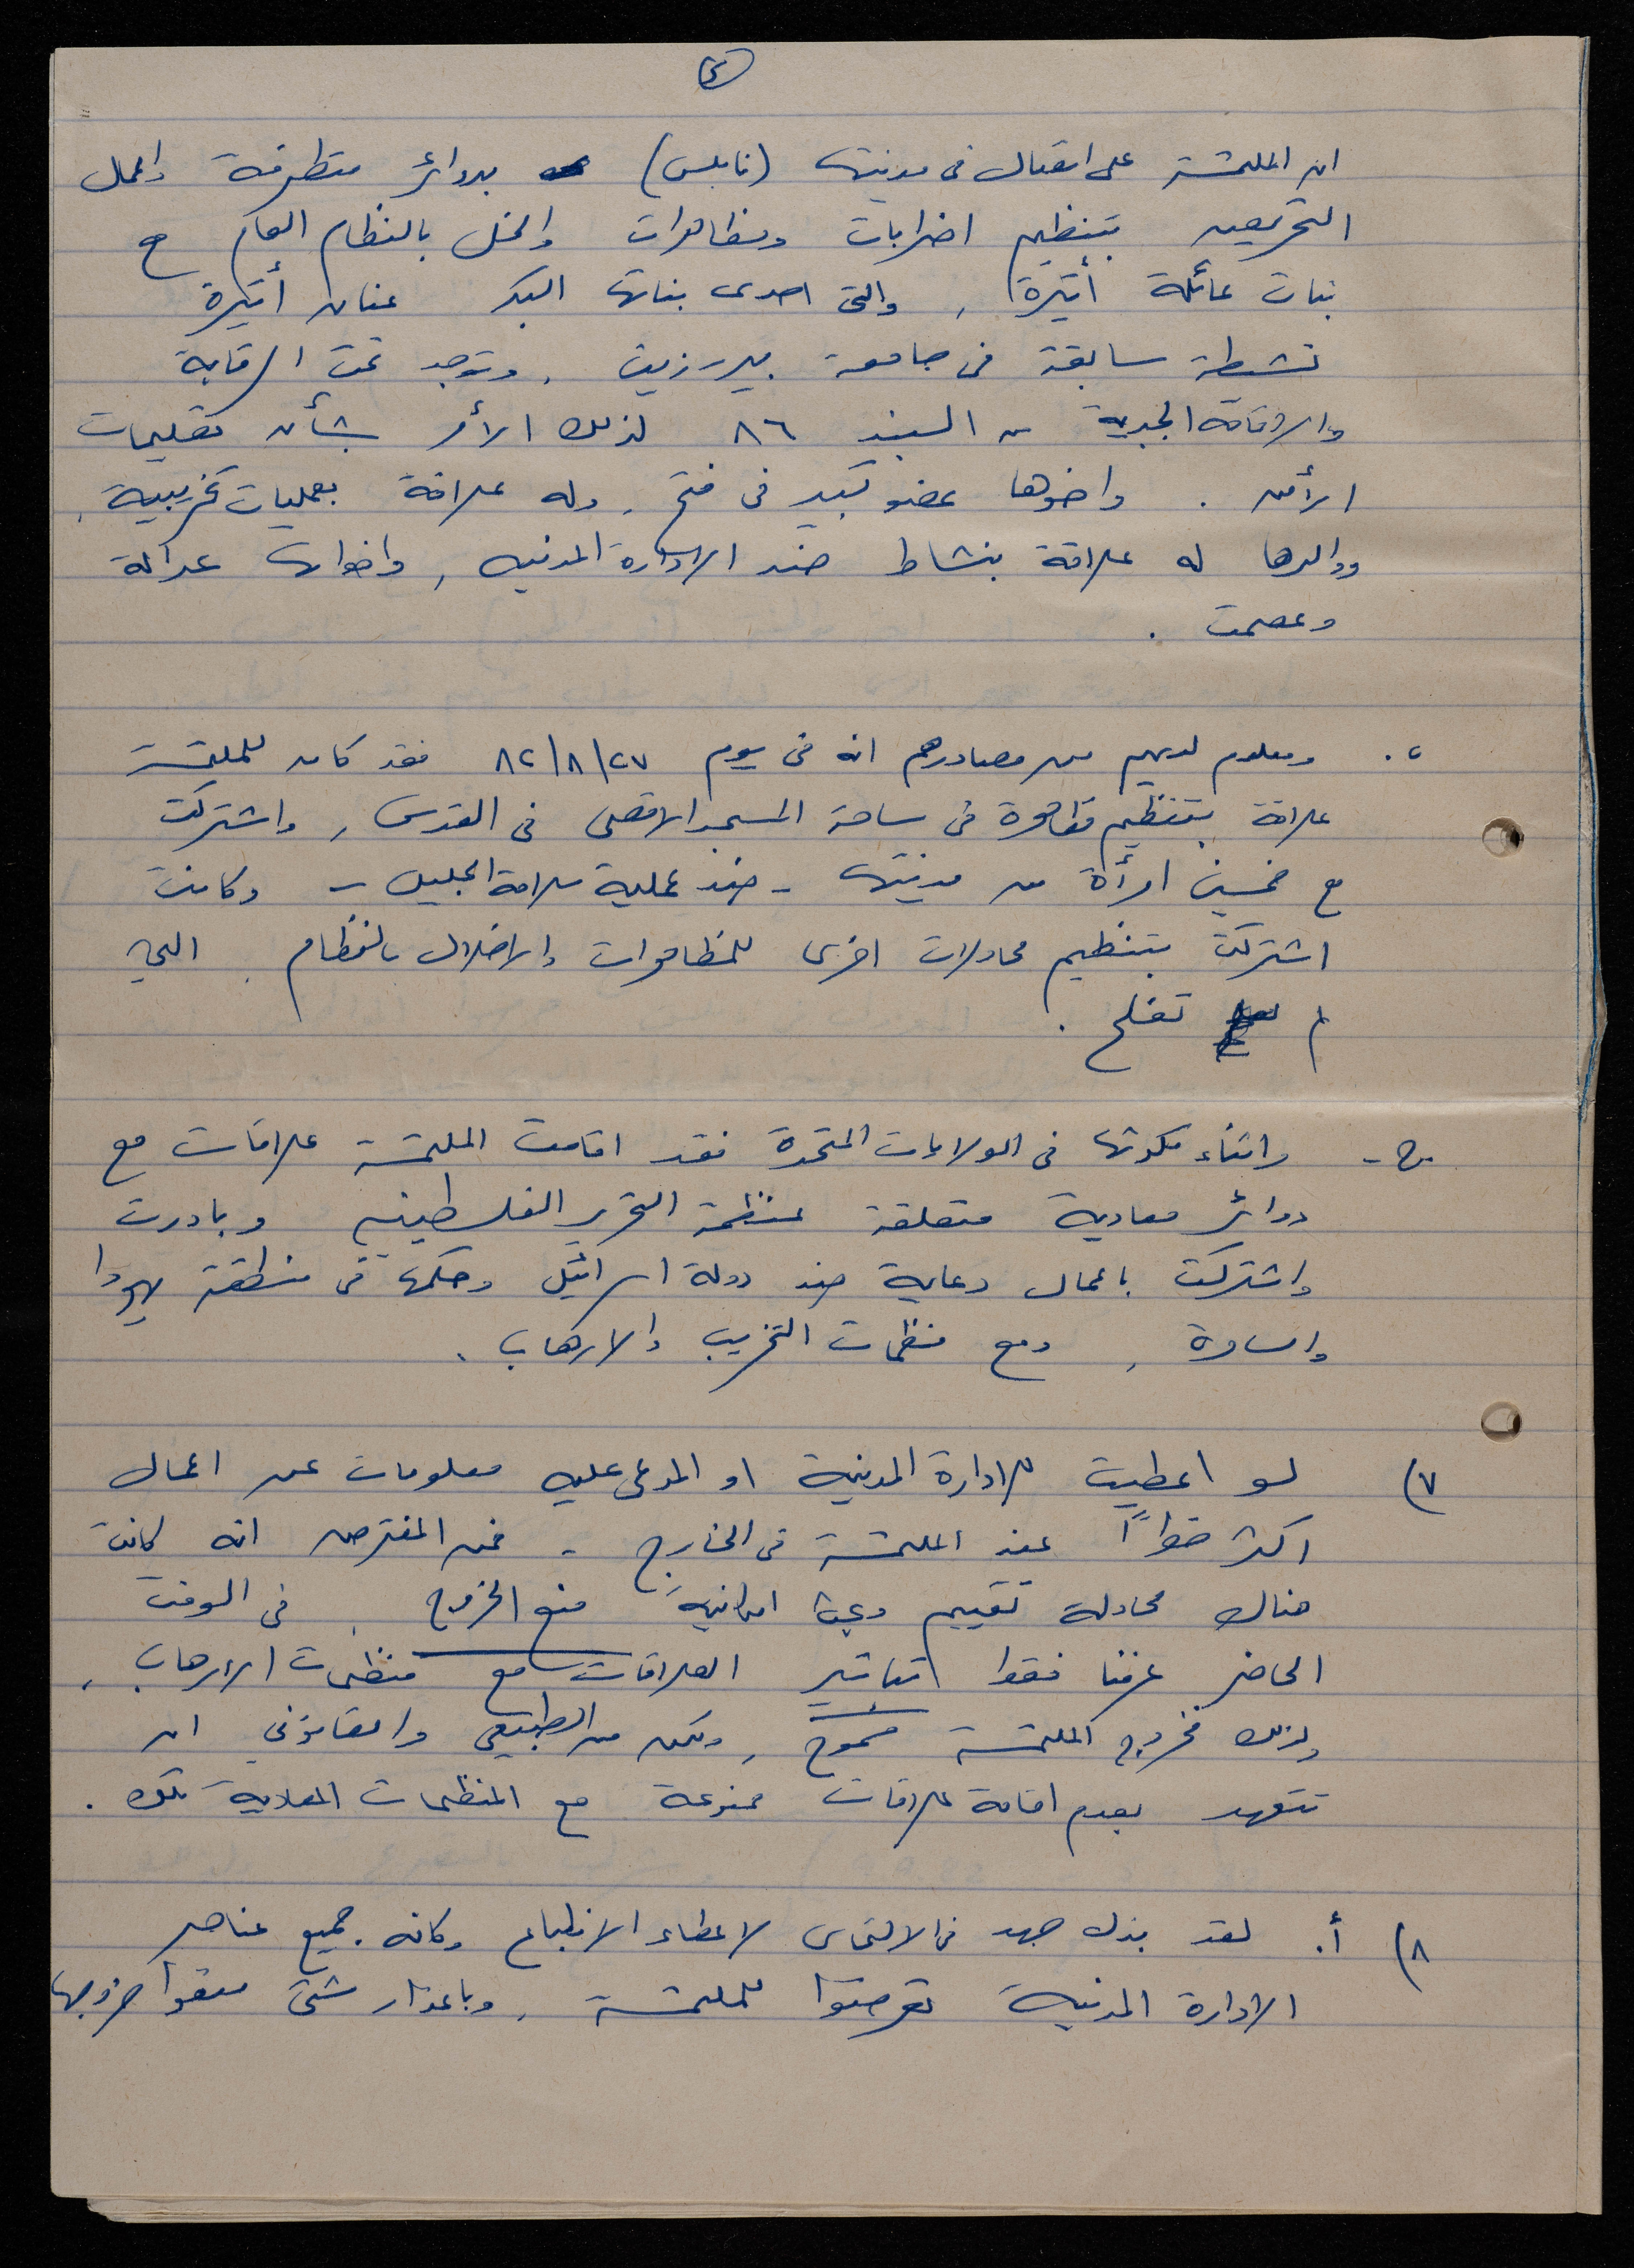 ان الملتمسة على اتصال في مدينتها (نابلس) بدوائر متطرفة واعمال
التحريض بتنظيم اضرابات ومظاهرات والخل بالنظام العام مع
بنات عائلة أتيرة، والتي احدى بناتها البكر عنان أتيرة
نشطة سابقة في جامعة بيرزيت، وتوجد تحت الرقابة
والاقامة الجبرية من السبند ٨٦ لذلك الأمر بشأن تعليمات
الأمن. واخوها عضو كبير في فتح، وله علاقة بعمليات تخريبية،
ووالدها له علاقة بنشاط ضد الادارة المدنية، واخواتها عدالة
وعصمت.
ب. ومعلوم لديهم من مصادرهم انه في يوم ٨٢/٨/٢٧ فقد كان للملتمسة
علاقة بتنظيم تظاهرة في ساحة المسجد الاقصى في القدس، واشتركت
مع خمسين امرأة من مدينتها - ضد عملية سلامة الجليل - وكانت
اشتركت بتنظيم محاولات اخرى للمظاهرات والاخلال بالنظام، التي
لم تفلح.
ج- واثناء مكوثها في الولايات المتحدة فقد اقامت الملتمسة علاقات مع
دوائر معادية متعلقة بمنظمة التحرير الفلسطينية وبادرت
واشتركت باعمال دعاية ضد دولة اسرائيل وحكمها في منطقة يهودا
والسامرة، ومع منظمات التخريب والارهاب.
٧) لو اعطيت للادارة المدنية او المدعى عليه معلومات عن اعمال
اكثر خطراً عند الملتمسة في الخارج - فمن المفترض انه كانت
هناك محاولة تقييم وبحث امكانية منع الخروج، في الوقت
الحاضر عرفنا فقط تأثير العلاقات مع منظمات الارهاب،
ولذلك فخروج الملتمسة مسموح، ولكن من الطبيعي والقانوني ان
تتعهد بعدم اقامة علاقات ممنوعة مع المنظمات المعادية تلك.
٨) أ. لقد بذل جهد في الالتماس لاعطاء الانطباع وكانه جميع عناصر
الادارة المدنية تعرضوا للملتمسة، وباعذار شتى منعوا خروجها